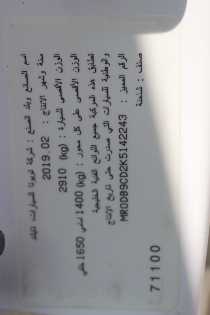 اسم الصانع وبلد الصنع : شركة تويوتا للسيارات
سنة وشهر الانتاج : 2019.02
الوزن الأقصى للسيارة : (kg) 2910
الوزن الأقصى على كل محور : (kg) 1400 أمامي 1650 خلفي
تطابق هذه المركبة جميع اللوائح الفنية الخليجية
والوطنية للسيارات التي صدرت على تاريخ الانتاج
الرقم المميز : MR0DB9CD2K5142243
صنف : شاحنة
71100